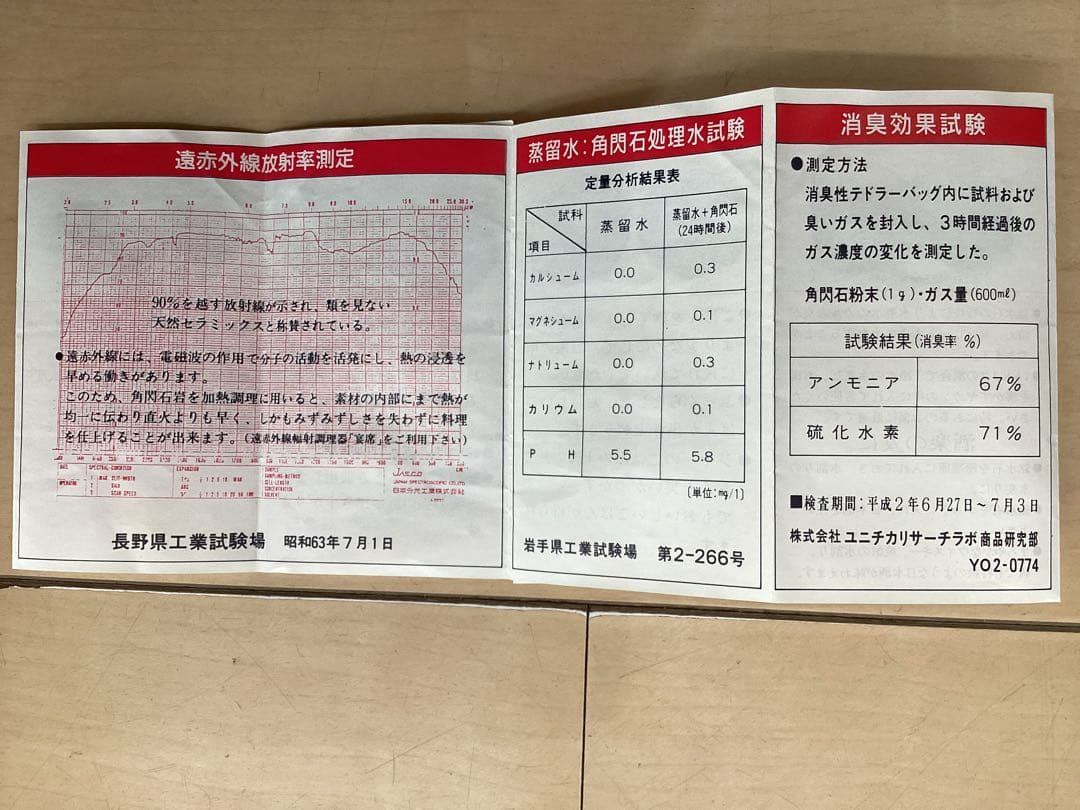 遠赤外線放射率測定
90%を越す放射線が示され、類を見ない
天然セラミックスと称賛されている。
●遠赤外線には、電磁波の作用で分子の活動を活発にし、熱の浸透を
早める働きがあります。
このため、角閃石岩を加熱調理に用いると、素材の内部にまで熱が
均一に伝わり直火よりも早く、しかもみずみずしさを失わずに料理
を仕上げることが出来ます。(遠赤外線輻射調理器「宴席」をご利用下さい)
JASCO
JAPAN SPECTROSCOPIC CO.,LTD.
日本分光工業株式会社
長野県工業試験場 昭和63年7月1日
蒸留水:角閃石処理水試験
定量分析結果表
試料
項目
蒸留水
蒸留水+角閃石
(24時間後)
カルシューム 0.0 0.3
マグネシューム 0.0 0.1
ナトリューム 0.0 0.3
カリウム 0.0 0.1
PH 5.5 5.8
〔単位:mg/1〕
岩手県工業試験場 第2-266号
消臭効果試験
●測定方法
消臭性テドラーバッグ内に試料および
臭いガスを封入し、3時間経過後の
ガス濃度の変化を測定した。
角閃石粉末(1g)・ガス量(600ml)
試験結果(消臭率 %)
アンモニア 67%
硫化水素 71%
■検査期間:平成2年6月27日~7月3日
株式会社 ユニチカリサーチラボ 商品研究部
YO2-0774